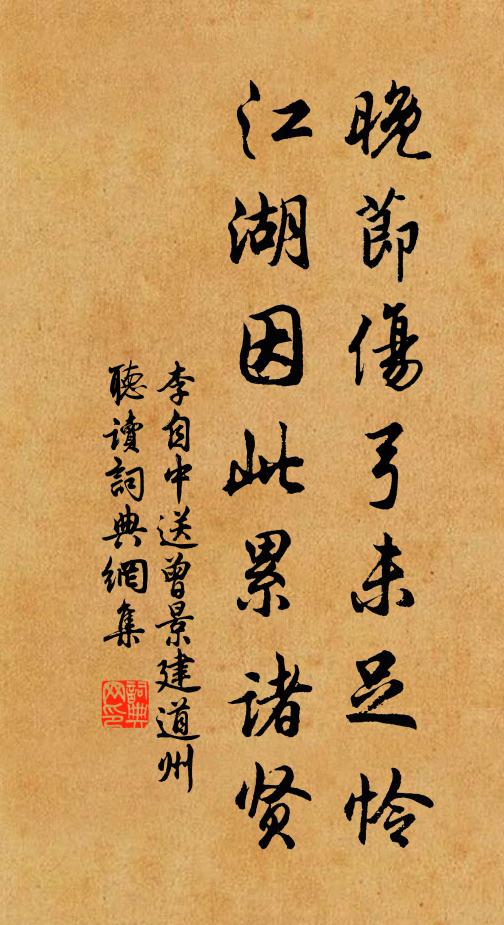 晚節傷弓未足怜
江湖因此累諸贤
李自中送曾景建道州
聽讀詞典網集
詞典网印